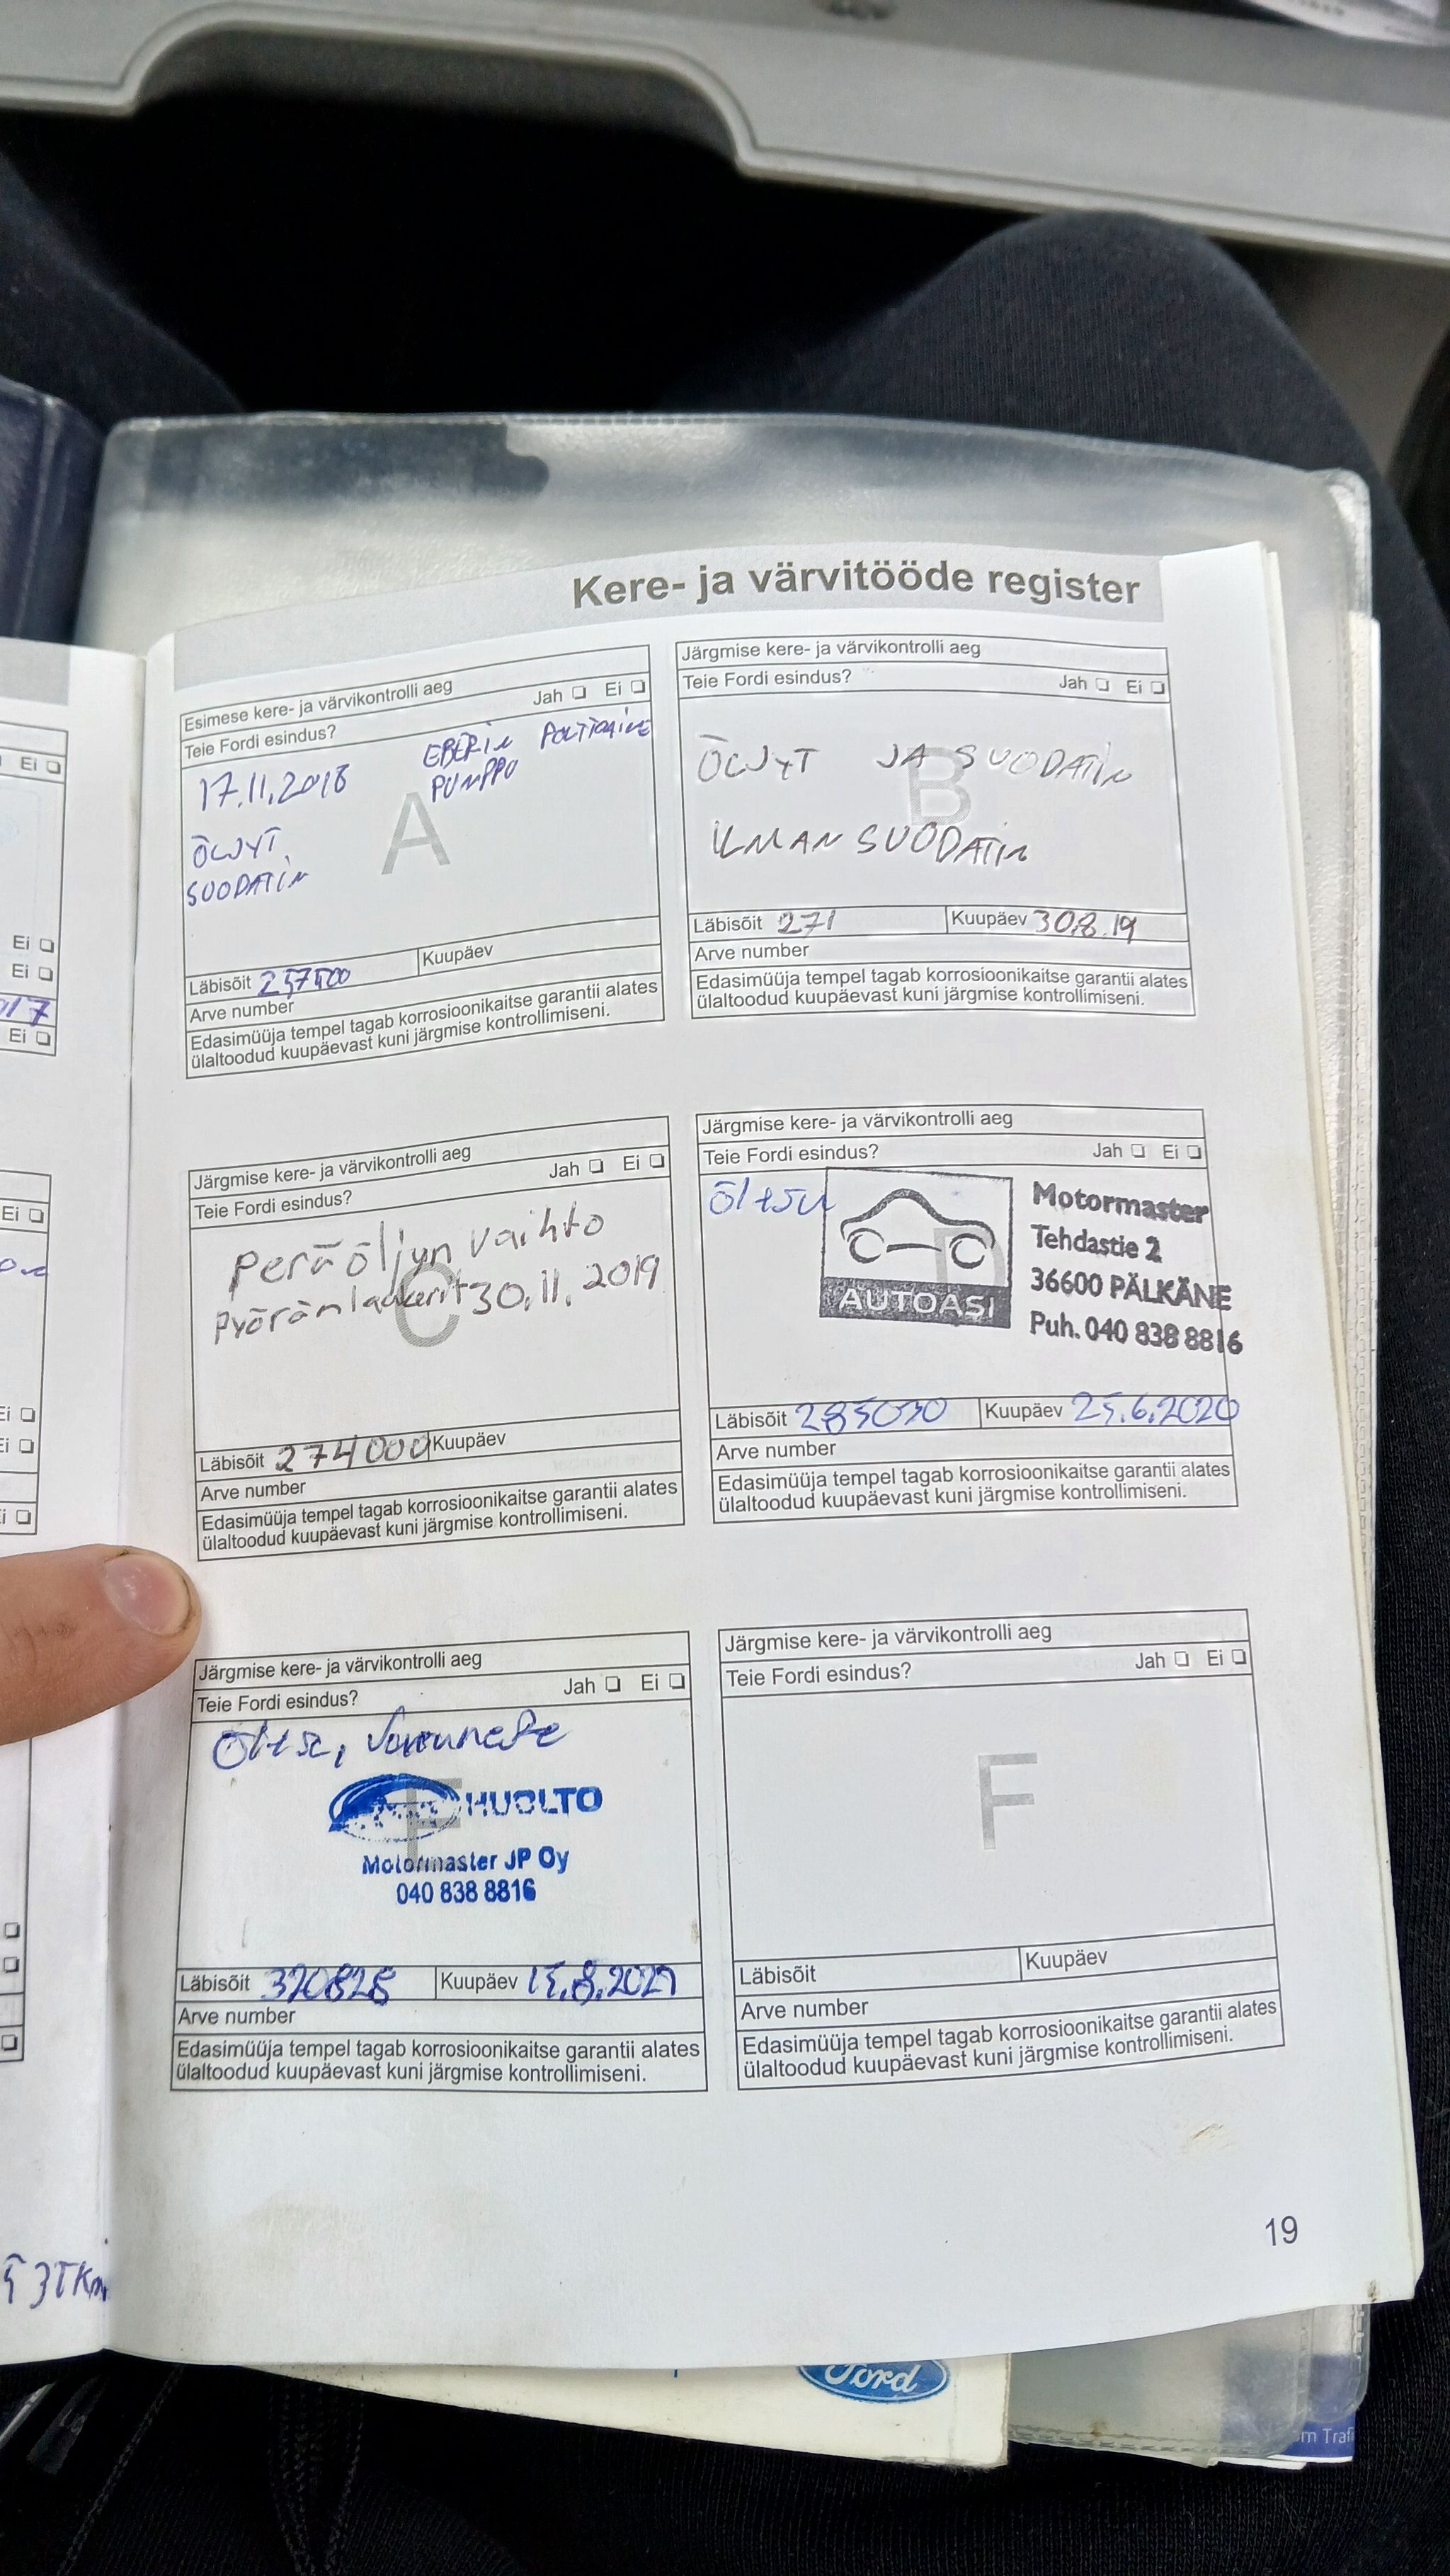 Kere- ja värvitööde register
Esimese kere- ja värvikontrolli aeg
Teie Fordi esindus? Jah Ei
17.11.2018 EBERIN POLTTOAINE
PUMPPU
A
ÖLJYT
SUODATIN
Läbisõit 257500 Kuupäev
Arve number
Edasimüüja tempel tagab korrosioonikaitse garantii alates
ülaltoodud kuupäevast kuni järgmise kontrollimiseni.
Järgmise kere- ja värvikontrolli aeg
Teie Fordi esindus? Jah Ei
ÖLJYT JA SUODATIN
B
ILMAN SUODATIN
Läbisõit 271 Kuupäev 30.8.19
Arve number
Edasimüüja tempel tagab korrosioonikaitse garantii alates
ülaltoodud kuupäevast kuni järgmise kontrollimiseni.
Järgmise kere- ja värvikontrolli aeg
Teie Fordi esindus? Jah Ei
Peräöljyn vaihto
Pyöränlaakerit 30.11.2019
C
Läbisõit 274000 Kuupäev
Arve number
Edasimüüja tempel tagab korrosioonikaitse garantii alates
ülaltoodud kuupäevast kuni järgmise kontrollimiseni.
Järgmise kere- ja värvikontrolli aeg
Teie Fordi esindus? Jah Ei
D
AUTOASI
Motormaster
Tehdastie 2
36600 PÄLKÄNE
Puh. 040 838 8816
Läbisõit 285030 Kuupäev 25.6.2020
Arve number
Edasimüüja tempel tagab korrosioonikaitse garantii alates
ülaltoodud kuupäevast kuni järgmise kontrollimiseni.
Järgmise kere- ja värvikontrolli aeg
Teie Fordi esindus? Jah Ei
E
HUOLTO
Motormaster JP Oy
040 838 8816
Läbisõit 320828 Kuupäev 15.8.2021
Arve number
Edasimüüja tempel tagab korrosioonikaitse garantii alates
ülaltoodud kuupäevast kuni järgmise kontrollimiseni.
Järgmise kere- ja värvikontrolli aeg
Teie Fordi esindus? Jah Ei
F
Läbisõit Kuupäev
Arve number
Edasimüüja tempel tagab korrosioonikaitse garantii alates
ülaltoodud kuupäevast kuni järgmise kontrollimiseni.
19
Ei
Ei
Ei
17
Ei
Ei
Ei
Ei
Ford